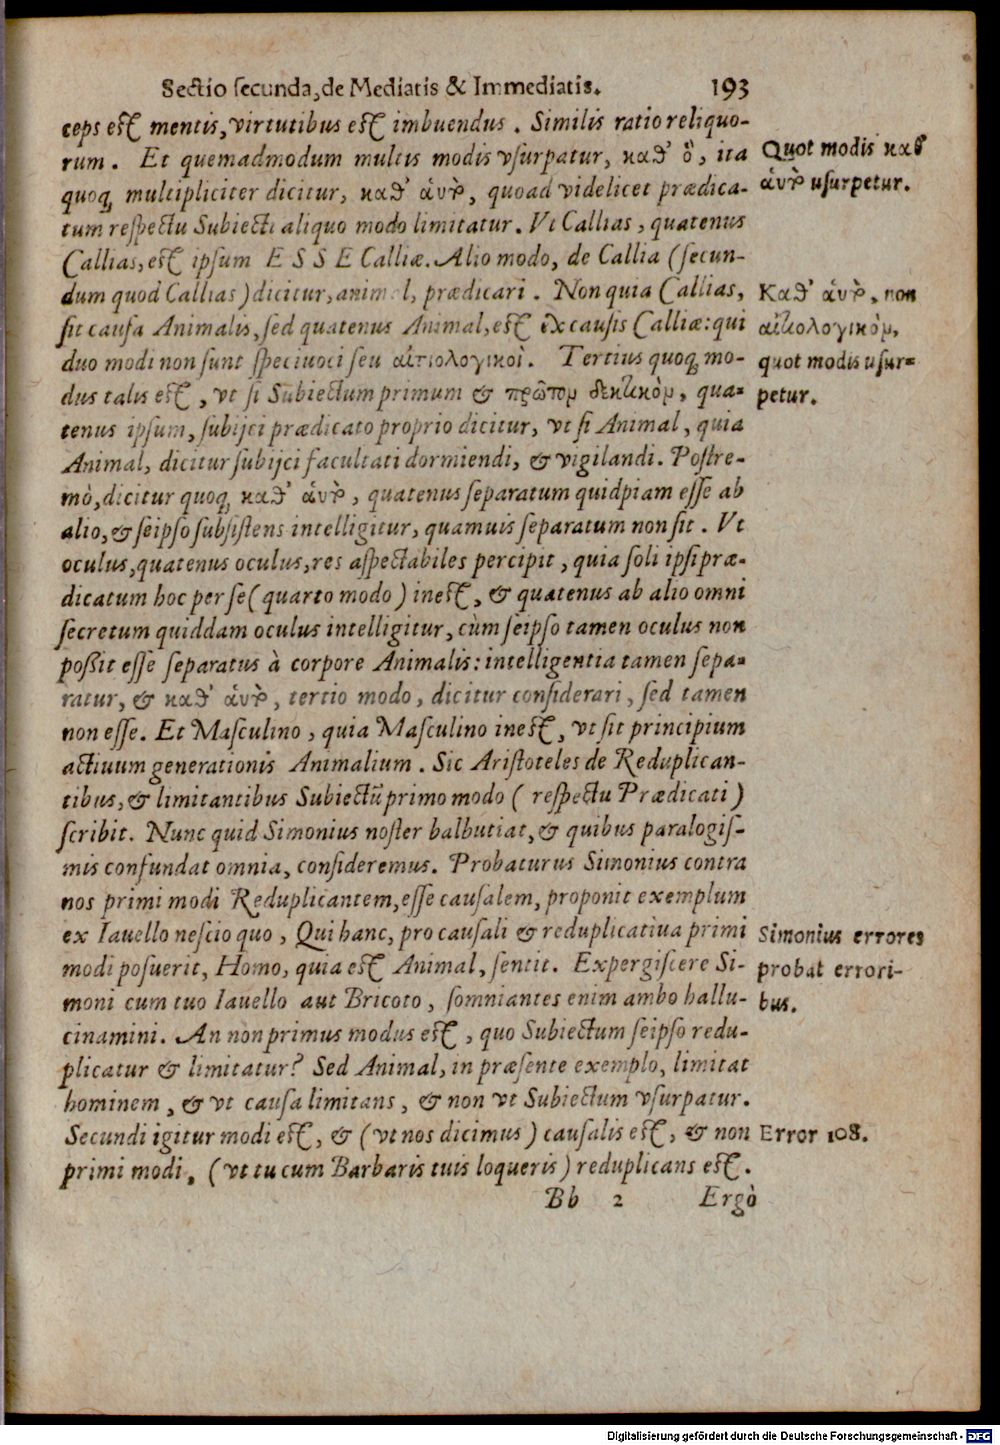 Sectio ſecunda, de Mediatis & Immediatis. 193
ceps eſt mentis, virtutibus eſt imbuendus. Similis ratio reliquo-
rum. Et quemadmodum multis modis vſurpatur, καθ' ὅ, ita
quoq; multipliciter dicitur, καθ' ἁυτὸ, quoad videlicet prædica-
tum reſpectu Subiecti aliquo modo limitatur. Vt Callias, quatenus
Callias, eſt ipſum ESSE Calliæ. Alio modo, de Callia (ſecun-
dum quod Callias) dicitur, animal, prædicari. Non quia Callias,
ſit cauſa Animalis, ſed quatenus Animal, eſt ex cauſis Calliæ: qui
duo modi non ſunt ſpeciuoci ſeu αἰτιολογικοὶ. Tertius quoq; mo-
dus talis eſt, vt ſi Subiectum primum & πρῶτομ δεκτικὸμ, qua-
tenus ipſum, ſubijci prædicato proprio dicitur, vt ſi Animal, quia
Animal, dicitur ſubijci facultati dormiendi, & vigilandi. Poſtre-
mò, dicitur quoq; καθ' ἁυτὸ, quatenus ſeparatum quidpiam eſſe ab
alio, & ſeipſo ſubſiſtens intelligitur, quamuis ſeparatum non ſit. Vt
oculus, quatenus oculus, res aſpectabiles percipit, quia ſoli ipſi præ-
dicatum hoc per ſe (quarto modo) ineſt, & quatenus ab alio omni
ſecretum quiddam oculus intelligitur, cùm ſeipſo tamen oculus non
poßit eſſe ſeparatus à corpore Animalis: intelligentia tamen ſepa-
ratur, & καθ' ἁυτὸ, tertio modo, dicitur conſiderari, ſed tamen
non eſſe. Et Maſculino, quia Maſculino ineſt, vt ſit principium
actiuum generationis Animalium. Sic Ariſtoteles de Reduplican-
tibus, & limitantibus Subiectũ primo modo (reſpectu Prædicati)
ſcribit. Nunc quid Simonius noſter balbutiat, & quibus paralogiſ-
mis confundat omnia, conſideremus. Probaturus Simonius contra
nos primi modi Reduplicantem, eſſe cauſalem, proponit exemplum
ex Iauello neſcio quo, Qui hanc, pro cauſali & reduplicatiua primi
modi poſuerit, Homo, quia eſt Animal, ſentit. Expergiſcere Si-
moni cum tuo Iauello aut Bricoto, ſomniantes enim ambo hallu-
cinamini. An non primus modus eſt, quo Subiectum ſeipſo redu-
plicatur & limitatur? Sed Animal, in præſente exemplo, limitat
hominem, & vt cauſa limitans, & non vt Subiectum vſurpatur.
Secundi igitur modi eſt, & (vt nos dicimus) cauſalis eſt, & non
primi modi, (vt tu cum Barbaris tuis loqueris) reduplicans eſt.
Bb 2 Ergò
Quot modis καθ'
ἁυτὸ uſurpetur.
Καθ' ἁυτὸ, non
αἰτιολογικὸμ,
quot modis uſur-
petur.
Simonius errores
probat errori-
bus.
Error 108.
Digitalisierung gefördert durch die Deutsche Forschungsgemeinschaft - DFG